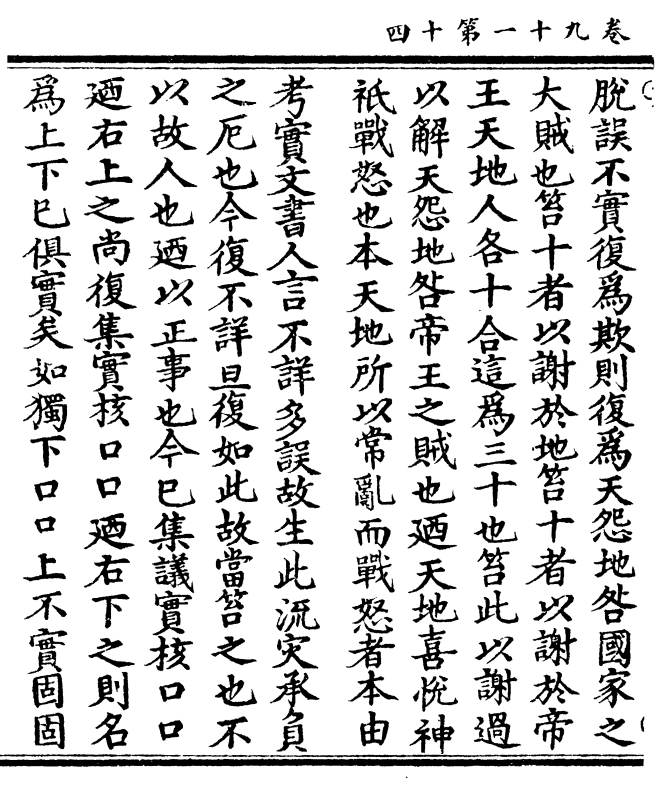 卷九十一第十四
脫誤不實復爲欺則復爲天怨地咎國家之
大賊也笞十者以謝於地笞十者以謝於帝
王天地人各十合這爲三十也笞此以謝過
以解天怨地咎帝王之賊也廼天地喜悅神
祇戰怒也本天地所以常亂而戰怒者本由
考實文書人言不詳多誤故生此流灾承負
之厄也今復不詳且復如此故當笞之也不
以故人也廼以正事也今巳集議實核口口
廼右上之尚復集實核口口廼右下之則名
爲上下巳俱實矣如獨下口口上不實固固